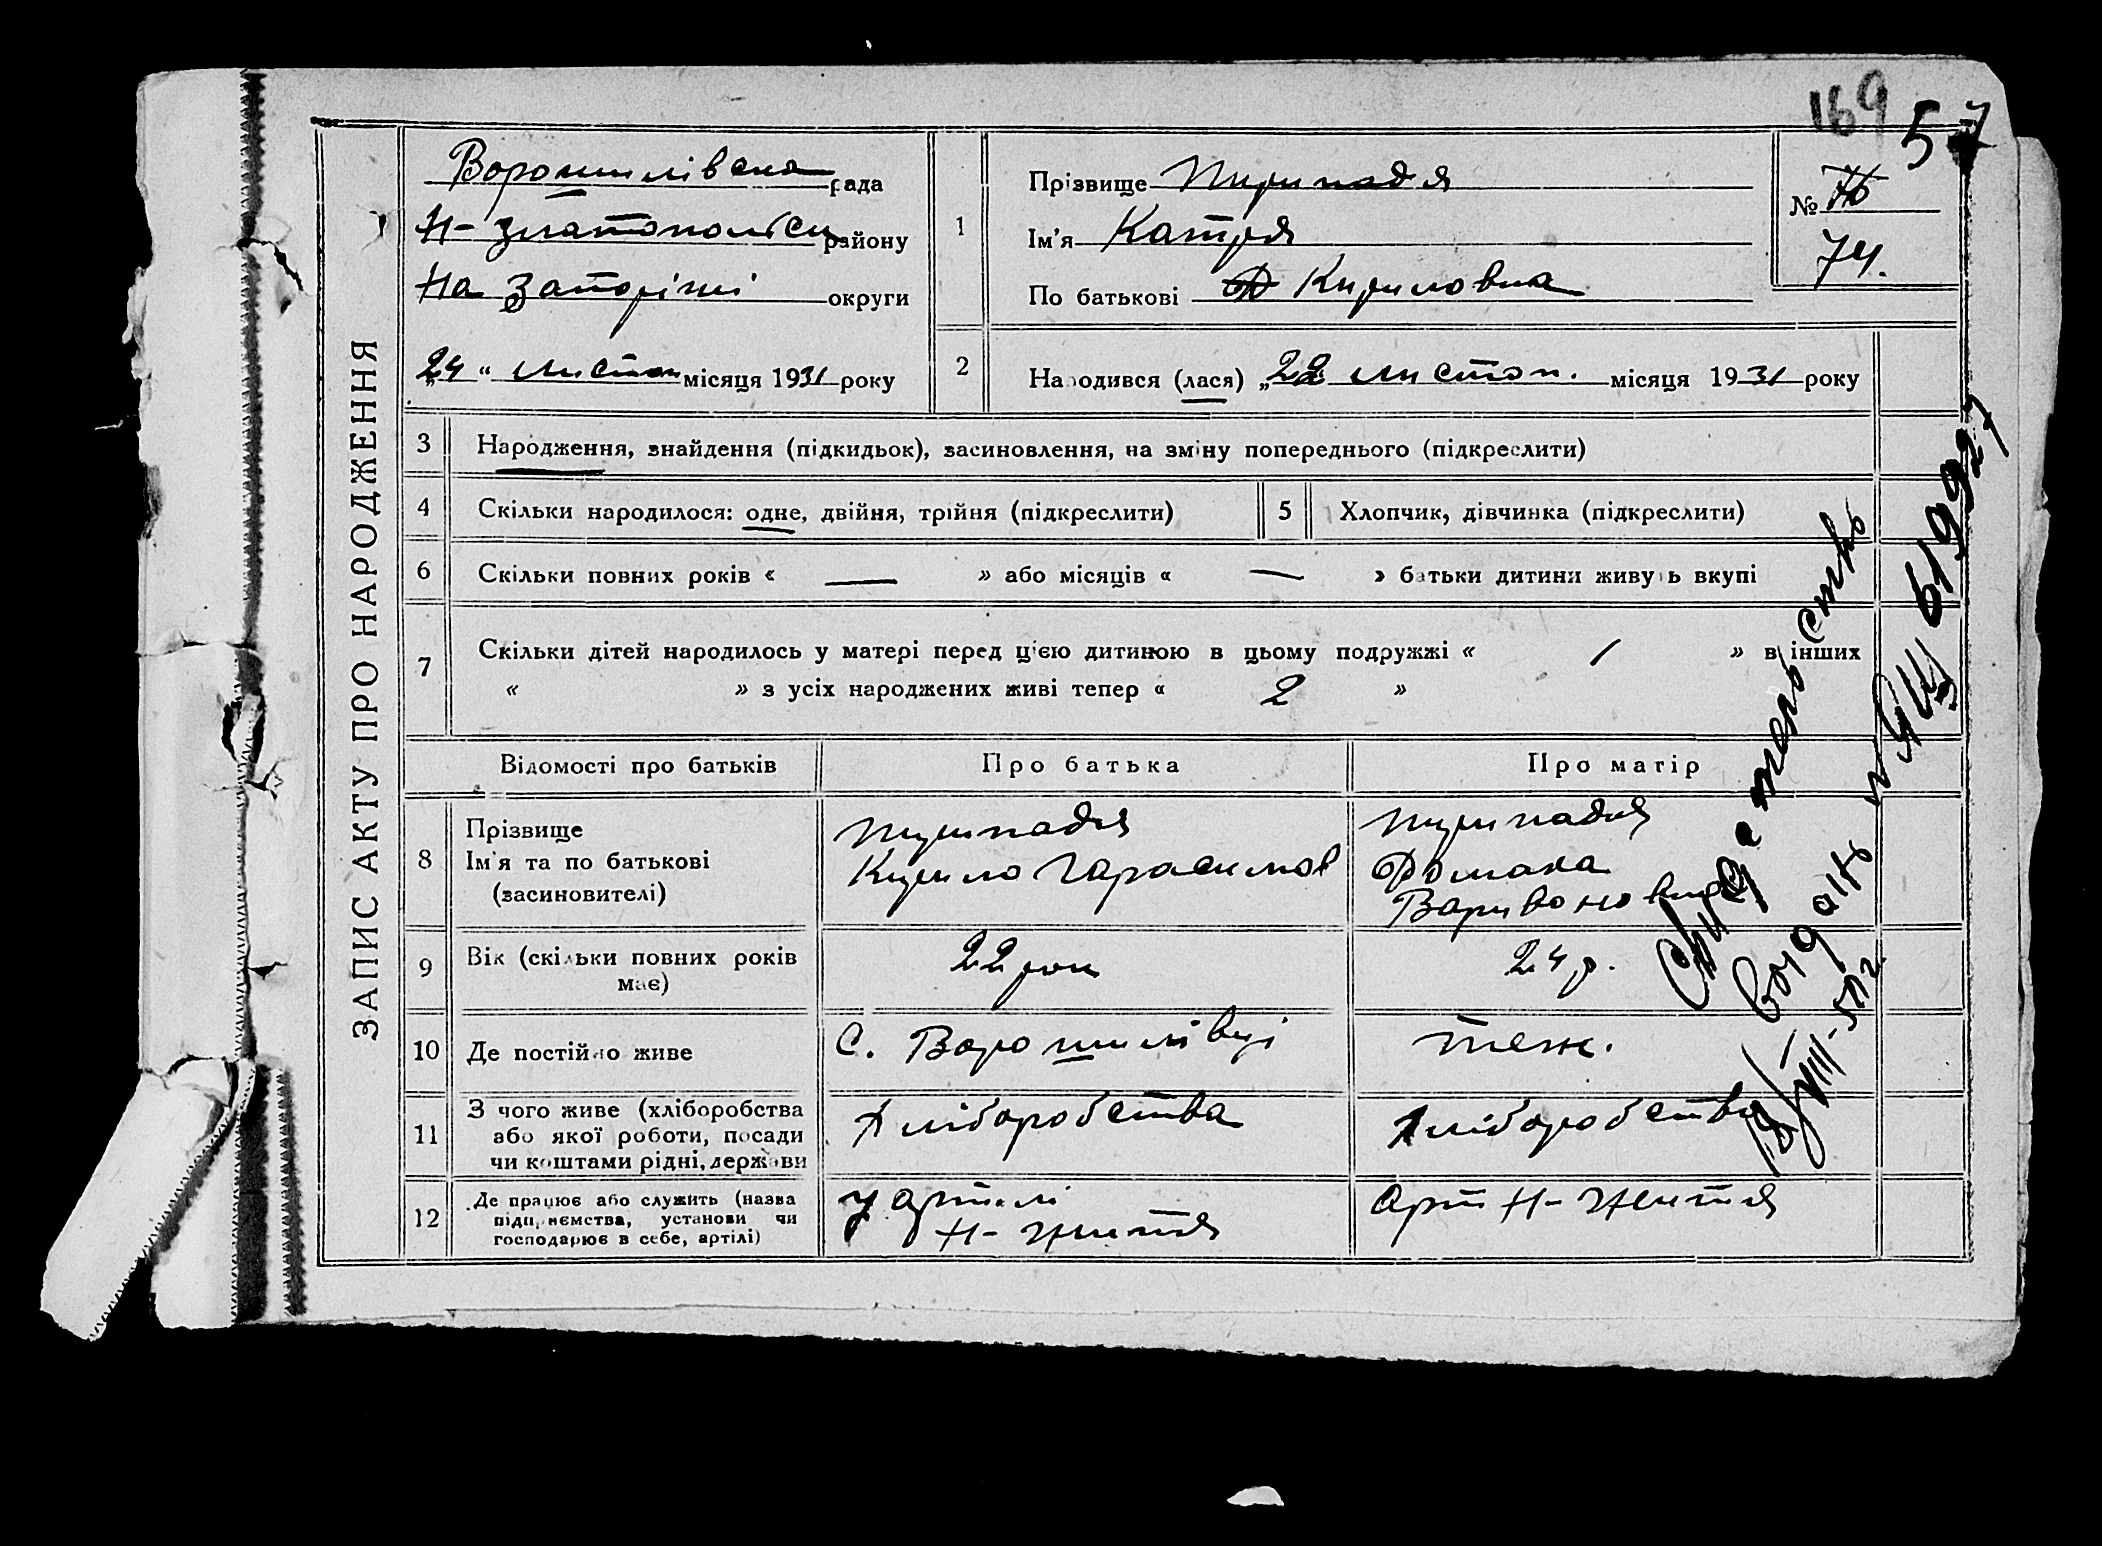 169
57
ЗАПИС АКТУ ПРО НАРОДЖЕННЯ
Ворошилівська рада
Н-Златопольськ району
На Запоріжі округи
„24“ листоп місяця 1931 року
1
Прізвище Пирипадя
Ім'я Катря
По батькові Кириловна
№ 76
74.
2
Народився (лася) „22 листоп. місяця 1931 року
3 Народження, знайдення (підкидьок), засиновлення, на зміну попереднього (підкреслити)
4 Скільки народилося: одне, двійня, трійня (підкреслити)
5 Хлопчик, дівчинка (підкреслити)
6 Скільки повних років « — » або місяців « — » батьки дитини живуть вкупі
7 Скільки дітей народилось у матері перед цією дитиною в цьому подружжі « 1 » в інших
« » з усіх народжених живі тепер « 2 »
Відомості про батьків
Про батька
Про матір
8 Прізвище
Ім'я та по батькові
(засиновителі)
Пирипадя
Кирило Гарасимов
Пирипадя
Домаха
Варивоновна
9 Вік (скільки повних років
має)
22 рок
24 р.
10 Де постійно живе
С. Ворошилівці
теж.
11 З чого живе (хліборобства
або якої роботи, посади
чи коштами рідні, держави
Хліборобства
Хліборобства
12 Де працює або служить (назва
підприємства, установи чи
господарює в себе, артілі)
У артілі
Н-Життя
Арт Н-Життя
Свидетельство
выдано